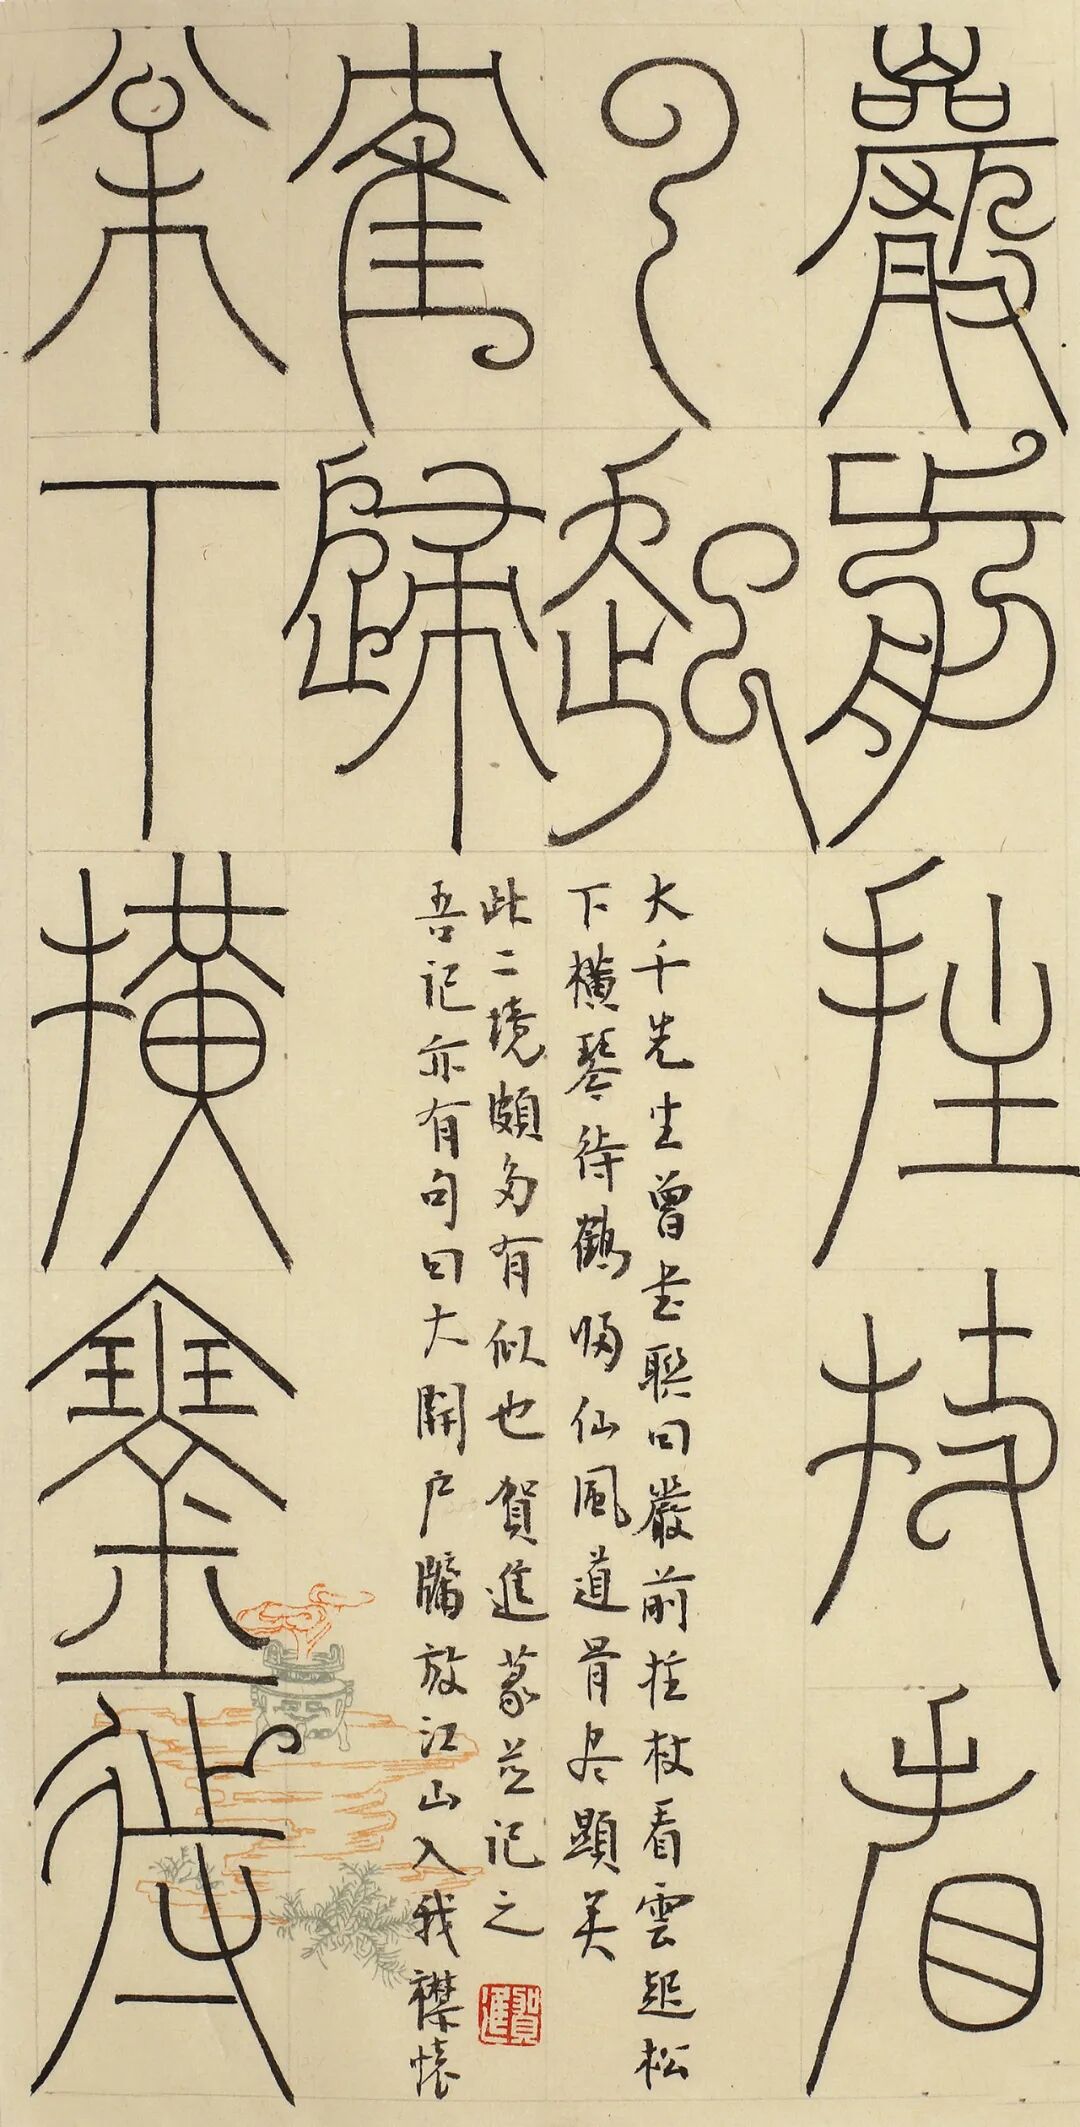 巖前拄杖看
云起
松下橫琴待
隺歸
大千先生曾书聯曰巖前拄杖看雲起松
下橫琴待鶴歸仙風道骨尽顯矣
此二境頗多有似也賀進篆并记之
吾记亦有句曰大開户牖放江山入我襟懷
賀進